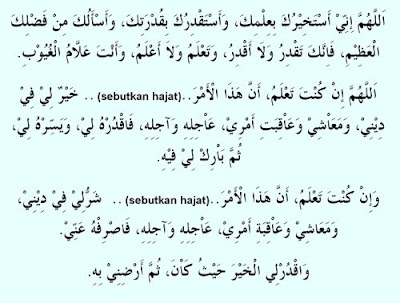 اَللَّهُمَّ إِنِّيْ أَسْتَخِيْرُكَ بِعِلْمِكَ، وَأَسْتَقْدِرُكَ بِقُدْرَتِكَ، وَأَسْأَلُكَ مِنْ فَضْلِكَ
الْعَظِيْمِ، فَإِنَّكَ تَقْدِرُ وَلَا أَقْدِرُ، وَتَعْلَمُ وَلَا أَعْلَمُ، وَأَنْتَ عَلَّامُ الْغُيُوْبِ.
اَللَّهُمَّ إِنْ كُنْتَ تَعْلَمُ، أَنَّ هَذَا الْأَمْرَ..(sebutkan hajat) .. خَيْرٌ لِيْ فِيْ
دِيْنِيْ، وَمَعَاْشِيْ وَعَاْقَبَتِ أَمْرِيْ، عَاْجِلِهِ وَآجِلِهِ، فَاقْدُرْهُ لِيْ، وَيَسِّرْهُ لِيْ،
ثُمَّ بَاْرِكْ لِيْ فِيْهِ.
وَإِنْ كُنْتَ تَعْلَمُ، أَنَّ هَذَا الْأَمْرَ..(sebutkan hajat) .. شَرٌّلِيْ فِيْ دِيْنِيْ،
وَمَعَاْشِيْ وَعَاْقِبَةِ أَمْرِيْ، عَاْجِلِهِ وَآجِلِهِ، فَاصْرِفْهُ عَنِّيْ.
وَاقْدُرْلِي الْخَيْرَ حَيْثُ كَاْنَ، ثُمَّ أَرْضِنِيْ بِهِ.